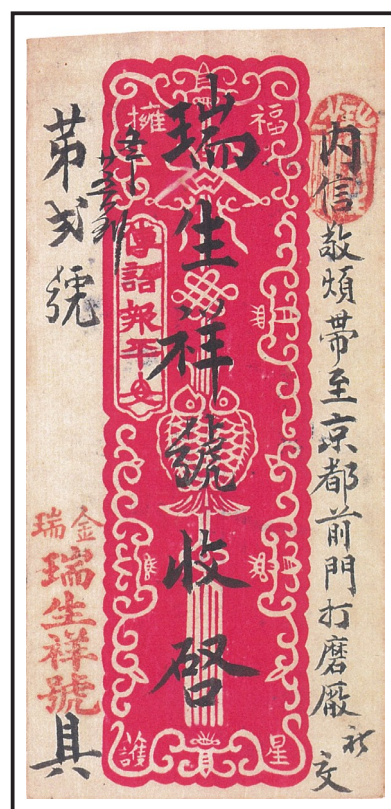 内信敬煩帶至京都前門打磨廠祈交
福
擁
星
護
瑞生祥號收啓
傳語報平安
第弍號
金瑞
瑞生祥號
具